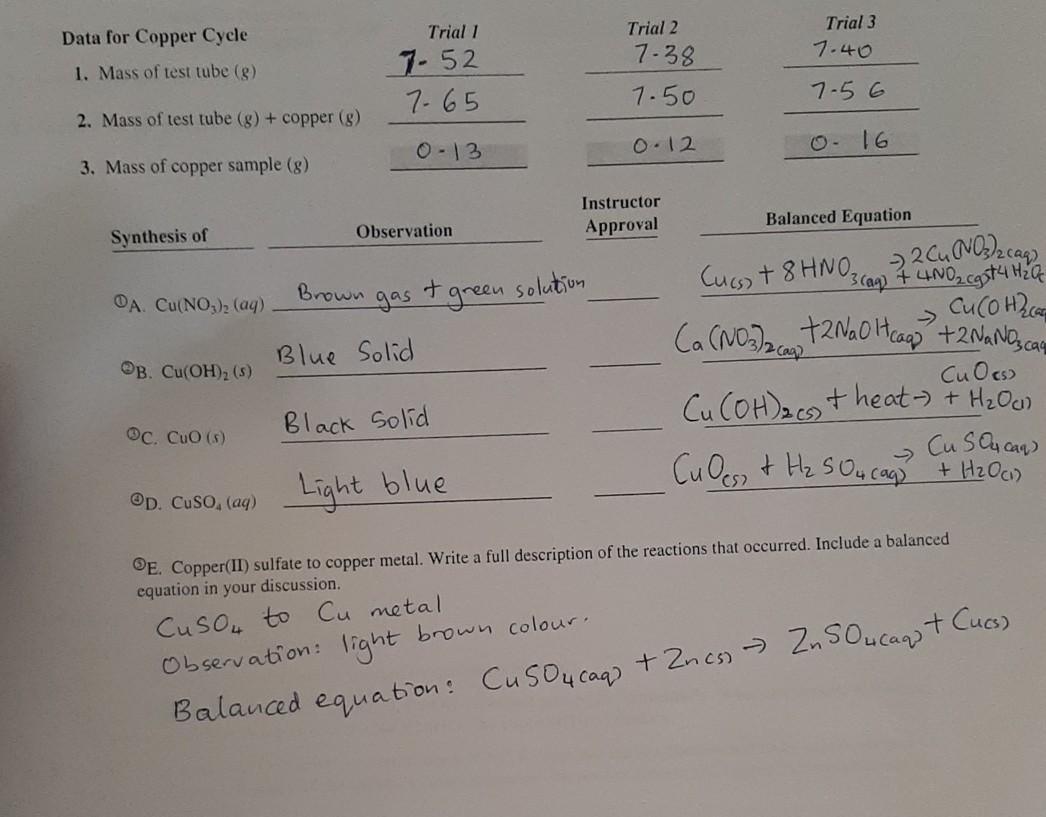 Data for Copper Cycle Trial 1 Trial 2 Trial 3
1. Mass of test tube (g) 7.52 7.38 7.40
2. Mass of test tube (g) + copper (g) 7.65 7.50 7.56
3. Mass of copper sample (g) 0.13 0.12 0.16
Synthesis of Observation Instructor Approval Balanced Equation
①A. Cu(NO3)2 (aq) Brown gas + green solution Cu(s) + 8HNO3(aq) → 2Cu(NO3)2(aq) + 4NO2(g) + 4H2O
②B. Cu(OH)2 (s) Blue Solid Ca(NO3)2(aq) + 2NaOH(aq) → Cu(OH)2(aq + 2NaNO3(aq
③C. CuO (s) Black Solid Cu(OH)2(s) + heat → CuO(s) + H2O(l)
④D. CuSO4 (aq) Light blue CuO(s) + H2SO4(aq) → CuSO4(aq) + H2O(l)
⑤E. Copper(II) sulfate to copper metal. Write a full description of the reactions that occurred. Include a balanced
equation in your discussion.
CuSO4 to Cu metal
Observation: light brown colour.
Balanced equation: CuSO4(aq) + Zn(s) → ZnSO4(aq) + Cu(s)